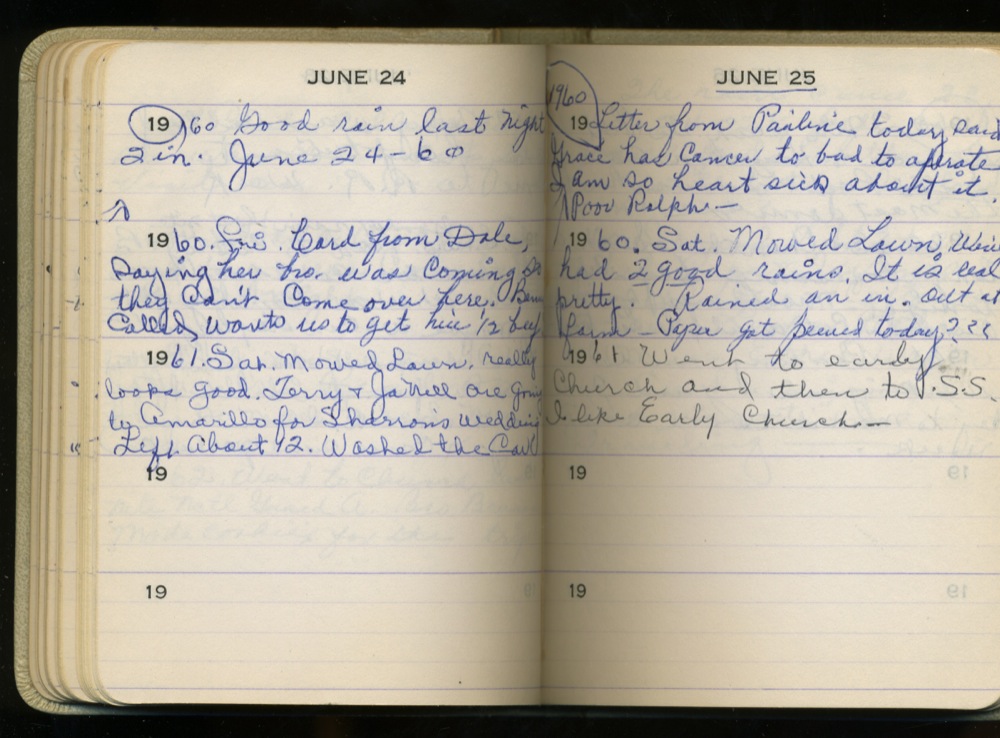 JUNE 24
1960 Good rain last night
2 in. June 24-60
1960. Fri. Card from Dale,
Saying her bro. was Coming so
they Can't Come over here.
Called, wants us to get him 1/2 beef
1961. Sat. Mowed Lawn. really
looks good. Terry & JaNell are going
to Amarillo for Sharron's wedding
Left About 12. Washed the Car
19
19
JUNE 25
1960
19 Letter from Pauline today said
Grace has Cancer to bad to aprate
I am so heart sick about it.
Poor Ralph—
1960. Sat. Mowed Lawn. We've
had 2 good rains. It is real
pretty. Rained an in. out at
farm - got peeved today???
1961 Went to early
Church and then to S.S.
I like Early Church—
19
19